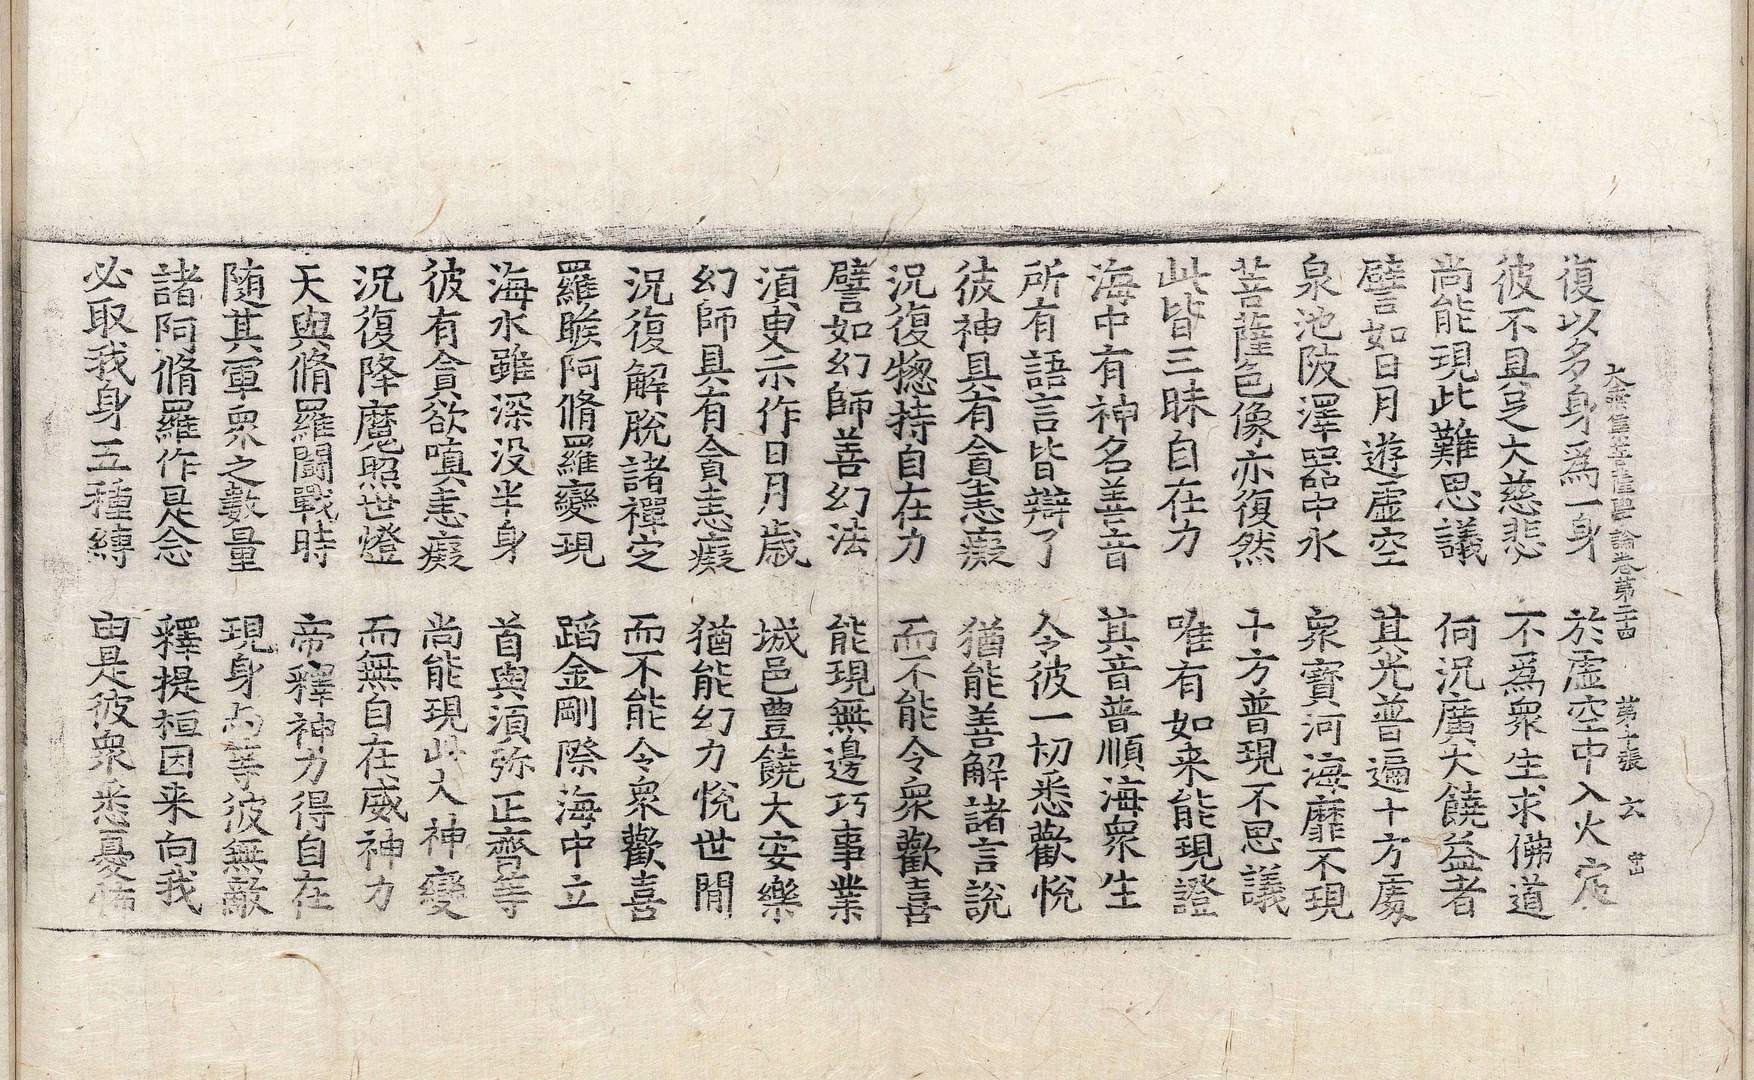 大乘集菩薩學論卷第二十四 第十張 六
復以多身爲一身 於虛空中入火定
彼不具足大慈悲 不爲衆生求佛道
尚能現此難思議 何況廣大饒益者
譬如日月遊虛空 其光普遍十方處
泉池陂澤器中水 衆寶河海靡不現
菩薩色像亦復然 十方普現不思議
此皆三昧自在力 唯有如来能現證
海中有神名善音 其音普順海衆生
所有語言皆辯了 令彼一切悉歡悅
彼神具有貪恚癡 猶能善解諸言說
況復摠持自在力 而不能令衆歡喜
譬如幻師善幻法 能現無邊巧事業
須臾示作日月歲 城邑豐饒大安樂
幻師具有貪恚癡 猶能幻力悅世閒
況復解脫諸禪定 而不能令衆歡喜
羅睺阿脩羅變現 蹈金剛際海中立
海水雖深没半身 首與須弥正齊等
彼有貪欲嗔恚癡 尚能現此大神變
況復降魔照世燈 而無自在威神力
天與脩羅鬪戰時 帝釋神力得自在
随其軍衆之數量 現身而等彼無敵
諸阿脩羅作是念 釋提桓因来向我
必取我身五種縛 由是彼衆悉憂怖